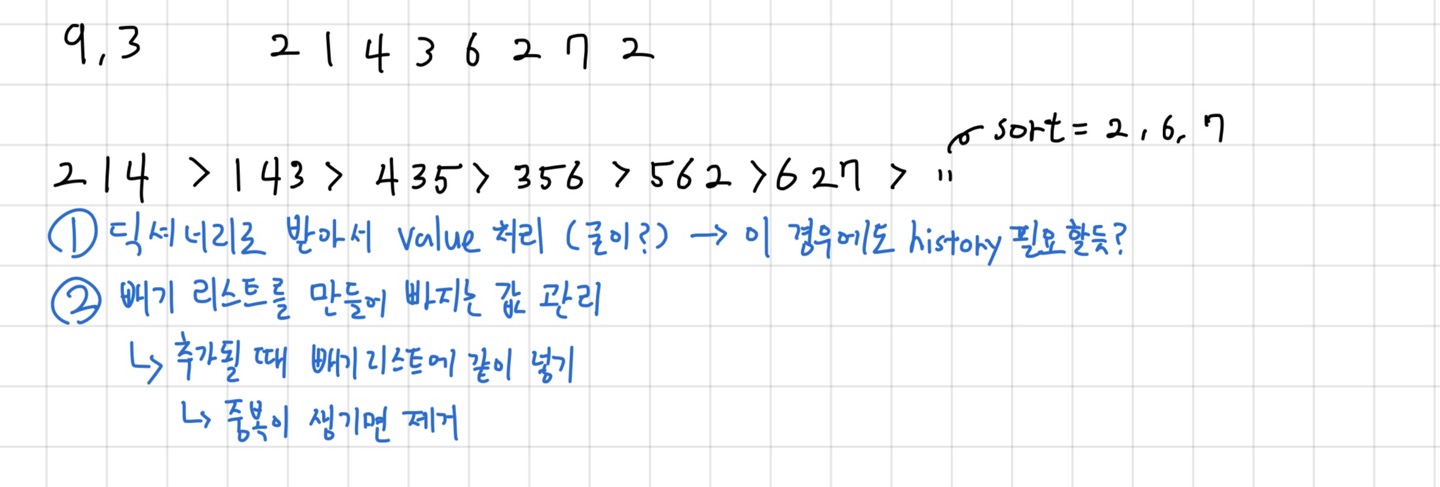 9,3 2 1 4 3 6 2 7 2
sort = 2, 6, 7
214 > 143 > 435 > 356 > 562 > 627 > "
① 딕셔너리로 받아서 value 처리 (굳이?) → 이 경우에도 history 필요할듯?
② 빼기 리스트를 만들어 빠지는 값 관리
↳ 추가될 때 빼기리스트에 같이 넣기
↳ 중복이 생기면 제거